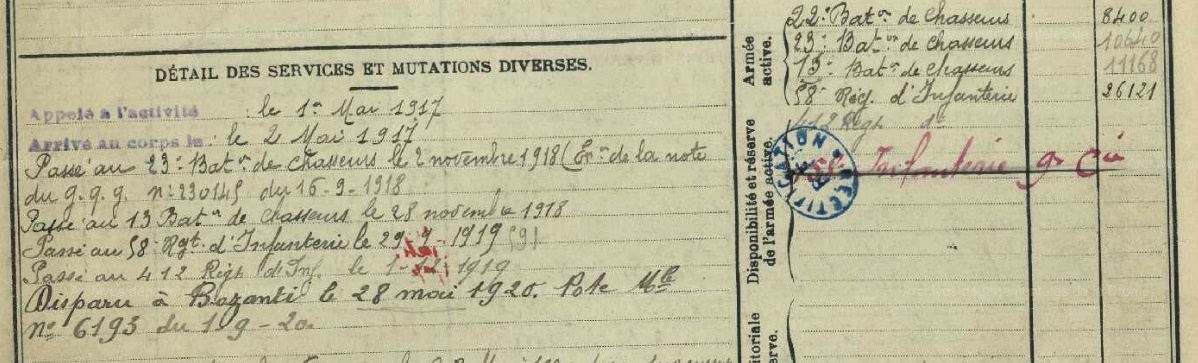 DÉTAIL DES SERVICES ET MUTATIONS DIVERSES.
Appelé à l'activité : le 1er Mai 1917
Arrivé au corps le : le 2 Mai 1917
Passé au 23e Baton de Chasseurs le 2 novembre 1918 (En on de la note
du g. q. g. n° 230145 du 16-9-1918
Passé au 13 Baton de chasseurs le 28 novembre 1918
Passé au 58e Rgt. d'Infanterie le 29 - 1919
Passé au 412 Régt d'Inf. le 1- 1919
Disparu à Bozanti le 28 mai 1920. Note Mle
n° 6193 du 1-9-20.
Armée active.
22e Baton de Chasseurs 8400
23e Baton de Chasseurs 10640
13e Baton de Chasseurs 11168
58e Rég. d'Infanterie 26121
Disponibilité et réserve de l'armée active.
412 Régt
Infanterie 9e Cie
itoriale
erve.